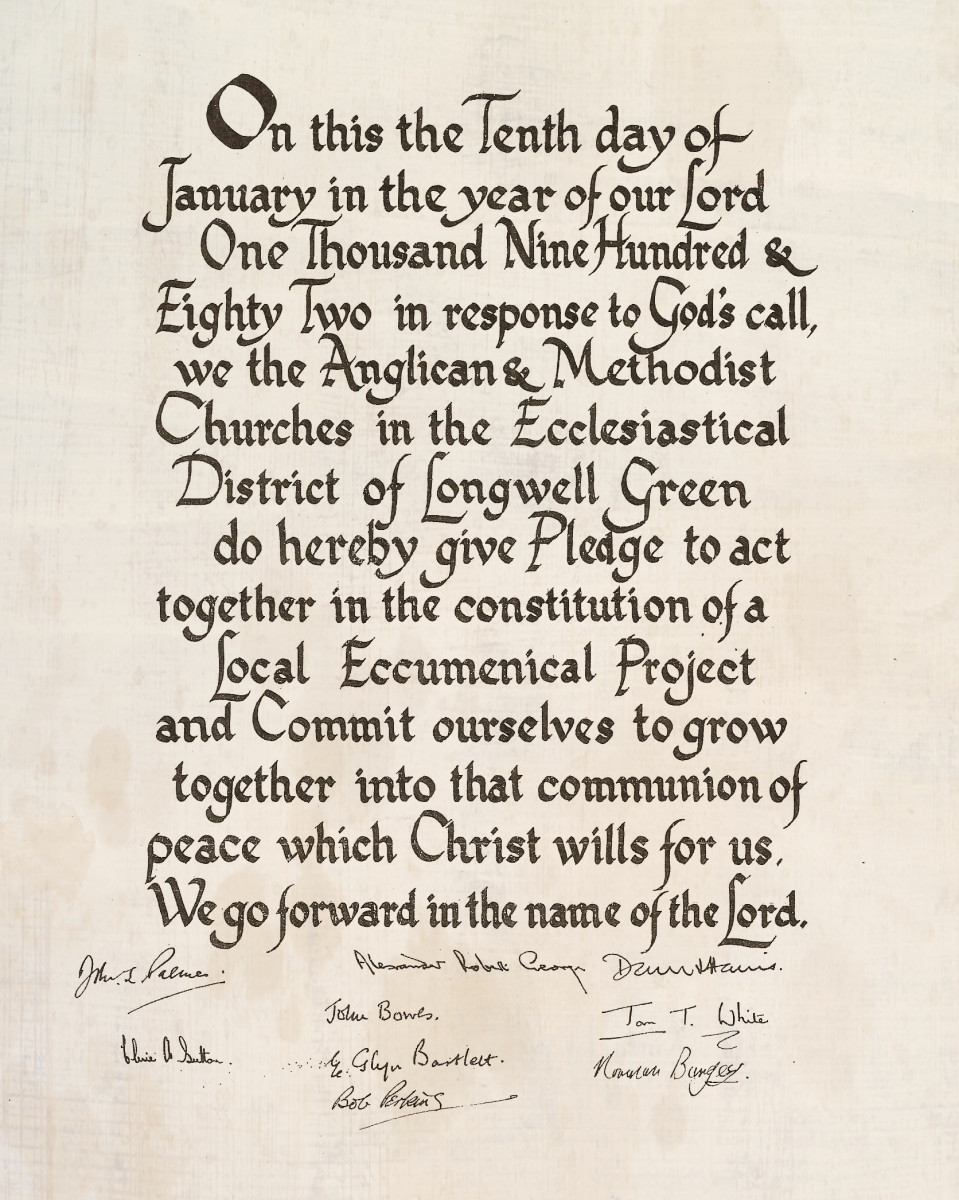 On this the Tenth day of
January in the year of our Lord
One Thousand Nine Hundred &
Eighty Two in response to God's call,
we the Anglican & Methodist
Churches in the Ecclesiastical
District of Longwell Green
do hereby give Pledge to act
together in the constitution of a
Local Eccumenical Project
and Commit ourselves to grow
together into that communion of
peace which Christ wills for us.
We go forward in the name of the Lord.
John L Palmer. Alexander Robert George Harris.
John Bowes. Tom T. White
Sutton. E. Glyn Bartlett. Norman Burgess.
Bob Perkins